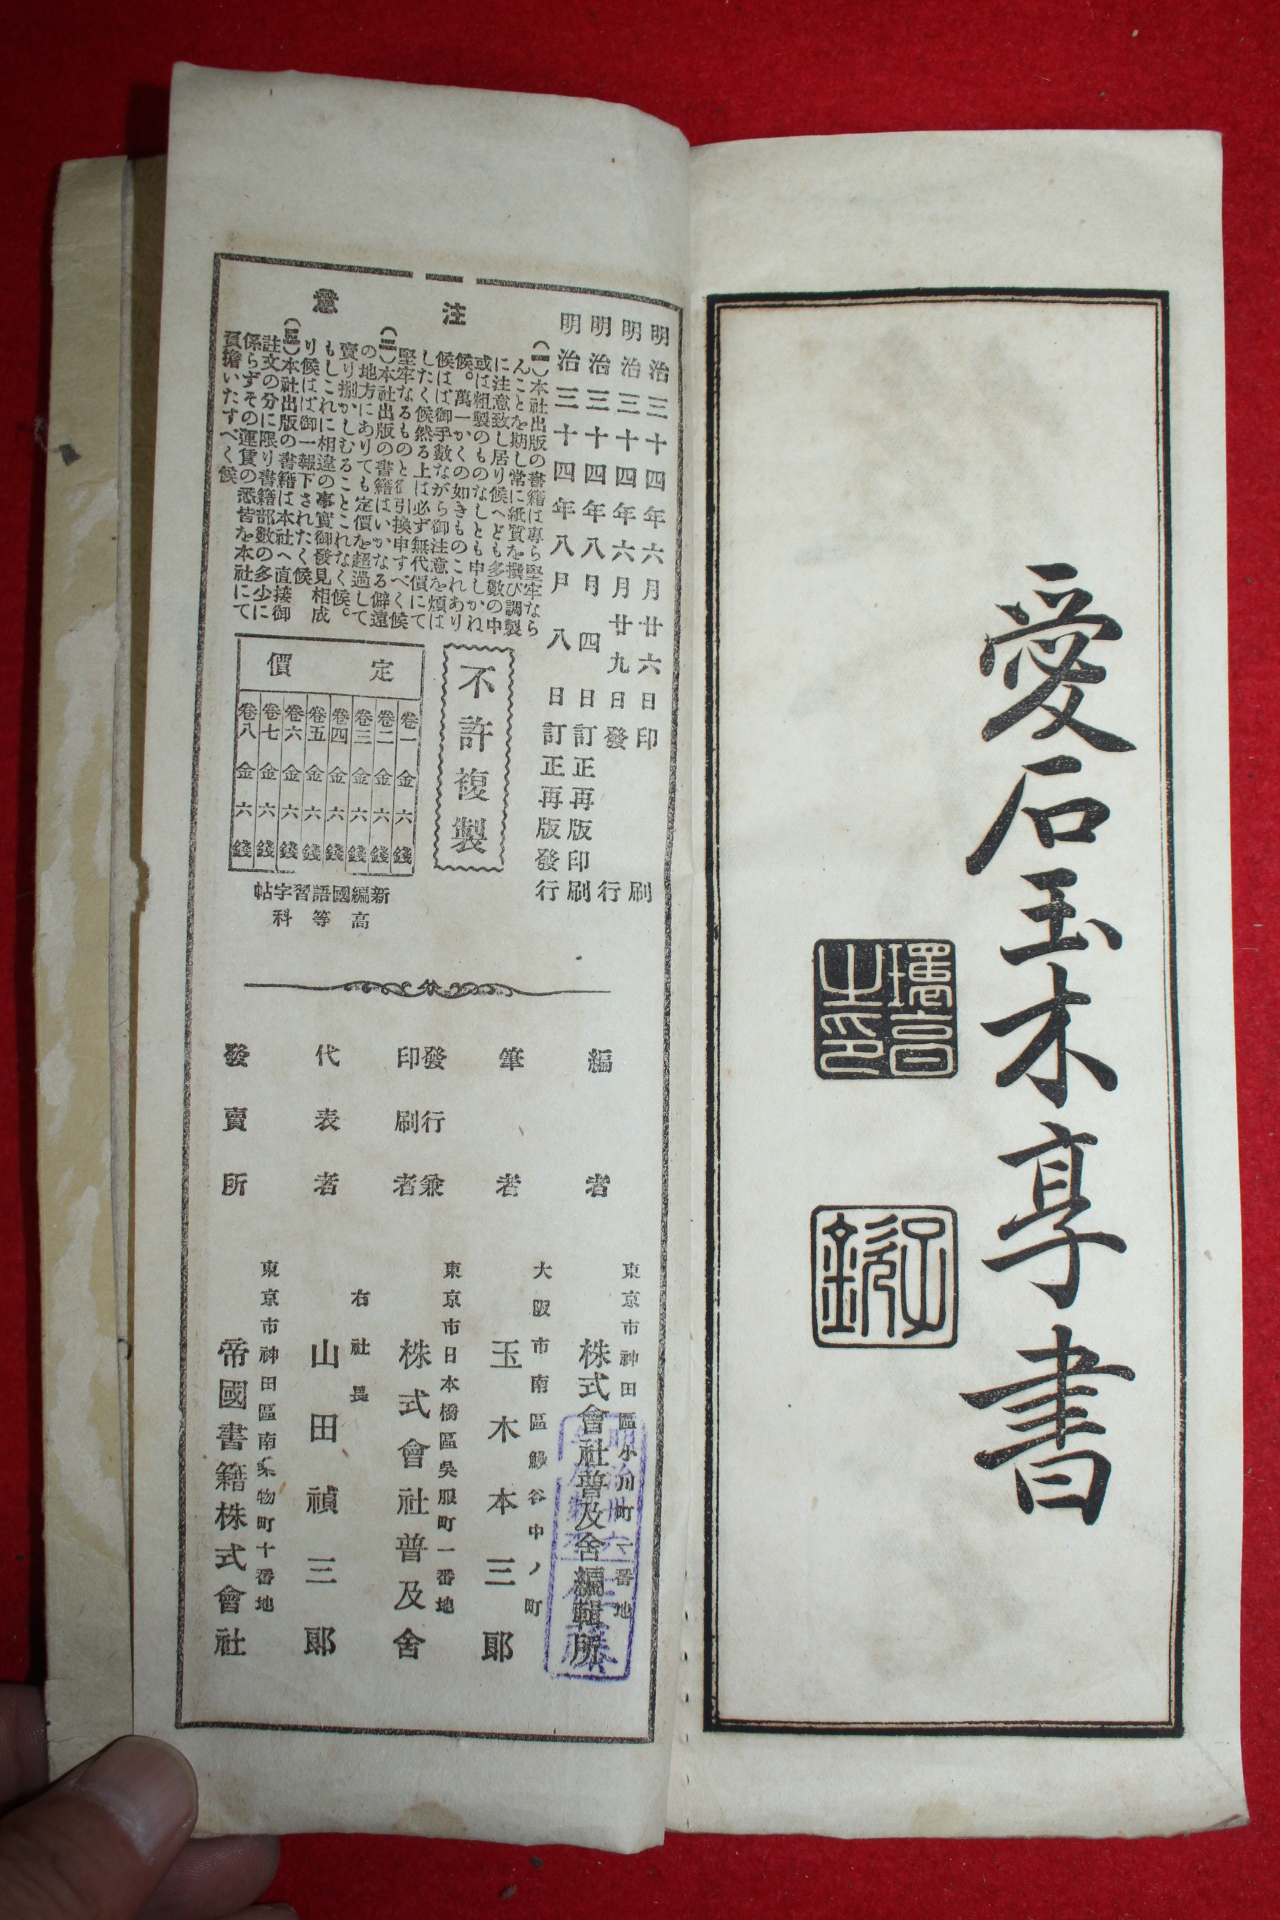 愛石玉木享書
明治三十四年六月廿六日印刷
明治三十四年六月廿九日發行
明治三十四年八月四日訂正再版印刷
明治三十四年八月八日訂正再版發行
注意
(一)本社出版の書籍は專ら堅牢なら
んことを期し常に紙質を撰び調製
に注意致し居り候へども多數の中
或は粗製のものなしとも申しかね
候。萬一かくの如きものこれあり
候はば御手數ながら御注意を煩は
したく候然る上は必ず無代價にて
堅牢なるものと御引換申すべく候
(二)本社出版の書籍はいかなる僻遠
の地方にありても定價を超過して
賣り捌かしむることこれなく候。
もしこれに相違の事實御發見相成
り候はば御一報下されたく候
(三)本社出版の書籍は本社へ直接御
註文の分に限り書籍部數の多少に
係らずその運賃の悉皆を本社にて
負擔いたすべく候
不許複製
定價
卷一金六錢
卷二金六錢
卷三金六錢
卷四金六錢
卷五金六錢
卷六金六錢
卷七金六錢
卷八金六錢
新編國語習字帖
高等科
編者
東京市神田區小川町一番地
株式會社普及舍編輯所
筆者
大阪市南區鰻谷中ノ町
玉木本三郎
發行兼
印刷者
東京市日本橋區吳服町一番地
株式會社普及舍
代表者
右社長
山田禎三郎
發賣所
東京市神田區南乘物町十番地
帝國書籍株式會社